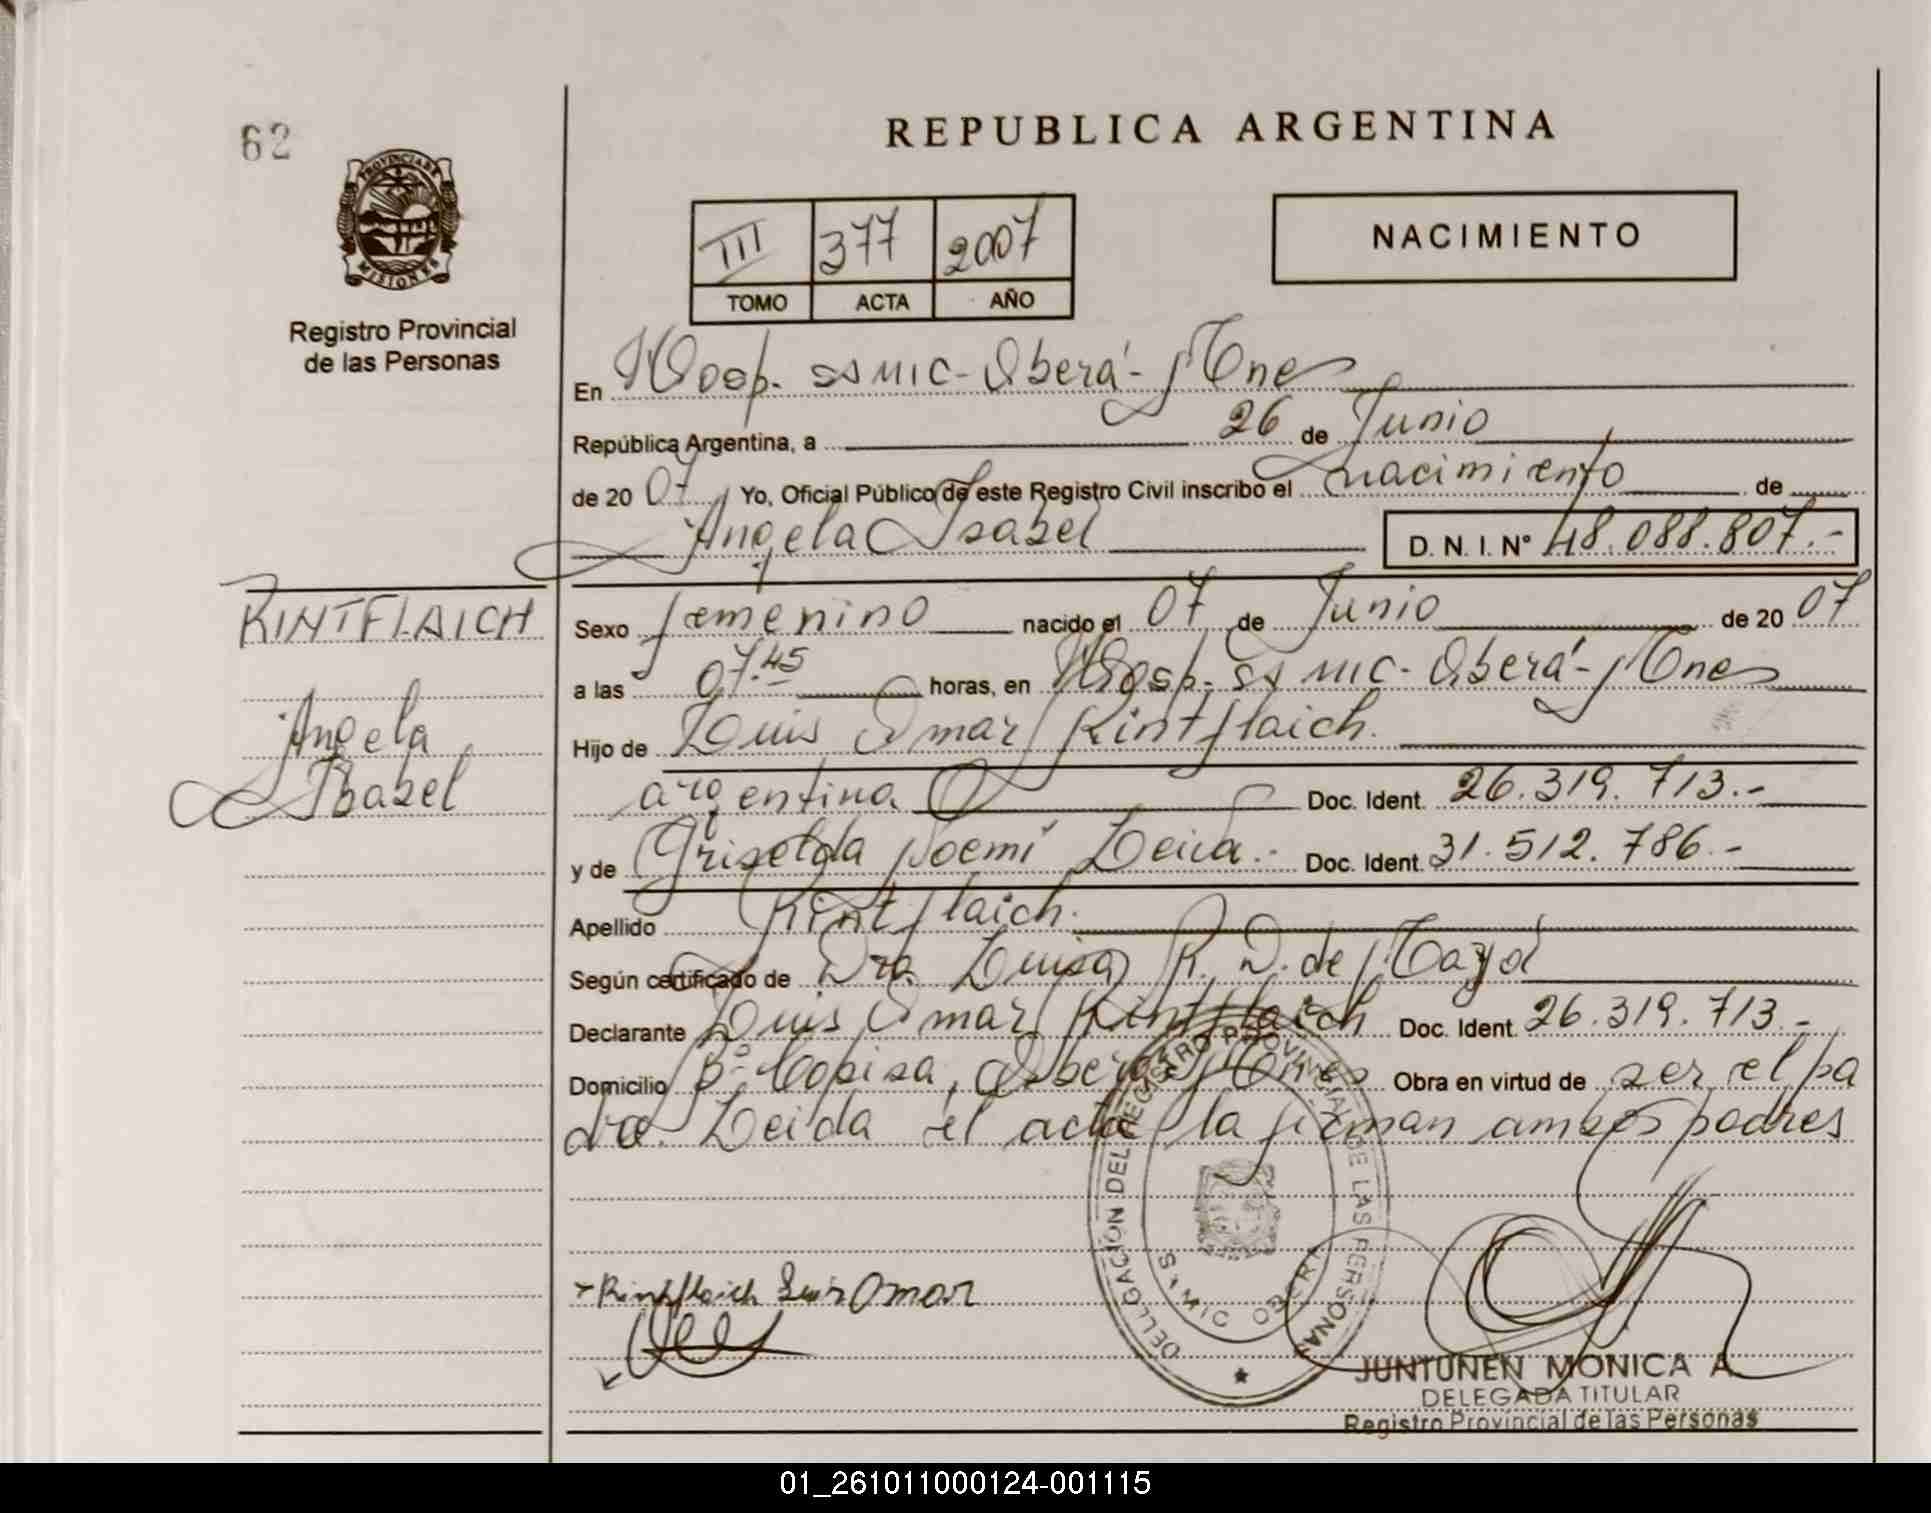 62
PROVINCIA DE
MISIONES
Registro Provincial
de las Personas
REPUBLICA ARGENTINA
III 377 2007
TOMO ACTA AÑO
NACIMIENTO
En Hosp. SSMIC - Oberá - Mnes
República Argentina, a 26 de Junio
de 20 07 Yo, Oficial Público de este Registro Civil inscribo el nacimiento de
Angela Isabel D. N. I. N° 48.088.807.-
RINTFLAICH
Angela
Isabel
Sexo femenino nacido el 07 de Junio de 20 07
a las 07.45 horas, en Hosp. SSMIC - Oberá - Mnes
Hijo de Luis Omar Rintflaich.
argentina Doc. Ident. 26.319.713.-
y de Griselda Noemí Doc. Ident. 31.512.786.-
Apellido Rintflaich.
Según certificado de Dra. Luisa R. D. de
Declarante Luis Omar Rintflaich Doc. Ident. 26.319.713.-
Domicilio Bº Copisa, Oberá Mnes Obra en virtud de ser el pa
dre. Leída el acta la firman ambos padres
Rintflaich Luis Omar
DELEGACIÓN DEL REGISTRO PROVINCIAL DE LAS PERSONAS
OBERA
JUNTUNEN MONICA A.
DELEGADA TITULAR
Registro Provincial de las Personas
01_261011000124-001115